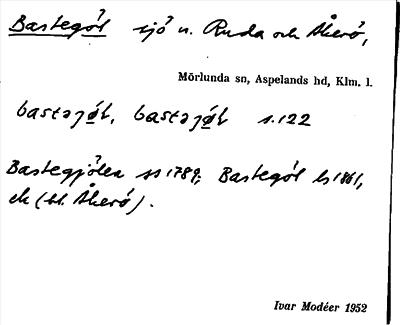 Bastegöl sjö u. Ruda och Åkerö,
Mörlunda sn, Aspelands hd, Klm. l.
bastəjø̀l, bastəjø̀l s. 122
Bastegjölen ss 1789; Bastegöl ls 1861,
ek (bl. Åkerö).
Ivar Modéer 1952